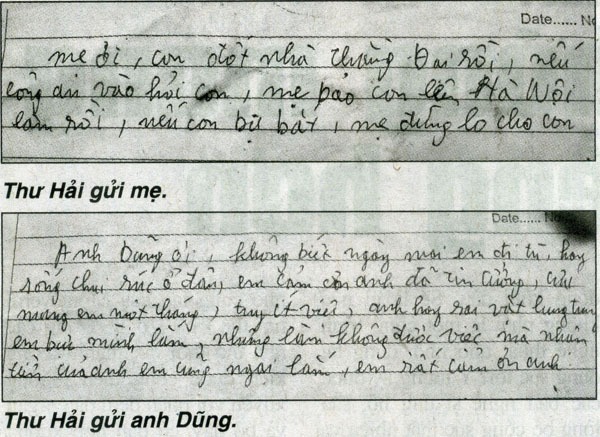 Date...... No
mẹ ơi, con đốt nhà thằng Đai rồi, nếu
công an vào hỏi con, mẹ bảo con lên Hà Nội
làm rồi, nếu con bị bắt, mẹ đừng lo cho con
Thư Hải gửi mẹ.
Date...... No
Anh Dũng ơi, không biết ngày mai em đi tù, hay
sống chui rúc ở đâu, em cảm ơn anh đã tin tưởng, cưu
mang em một tháng, tuy ít việc, anh hay sai vặt lung tung
em bực mình lắm, nhưng làm không được việc mà nhận
tiền của anh em cũng ngại lắm, em rất cảm ơn anh
Thư Hải gửi anh Dũng.